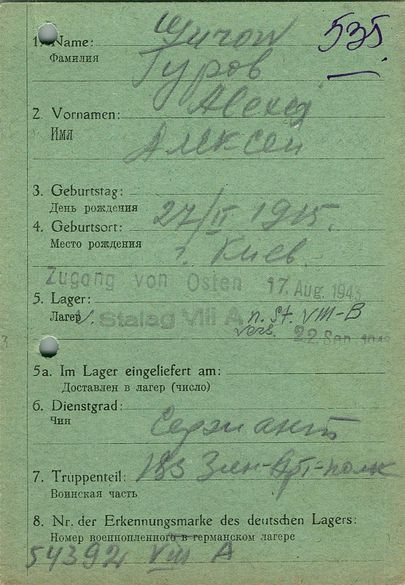 535.
1. Name:
Фамилия
Гуров
2. Vornamen:
Имя
Алексей
3. Geburtstag:
День рождения
27/II 1915.
4. Geburtsort:
Место рождения
г. Киев
Zugang von Osten 17. Aug. 1943
5. Lager:
Лагерь
Stalag VIII A n. St. VIII-B
vers. 22 Sep. 1943
5a. Im Lager eingeliefert am:
Доставлен в лагерь (число)
6. Dienstgrad:
Чин
Сержант
7. Truppenteil:
Воинская часть
183 Зен-Арт-полк
8. Nr. der Erkennungsmarke des deutschen Lagers:
Номер военнопленного в германском лагере
54392 VIII A